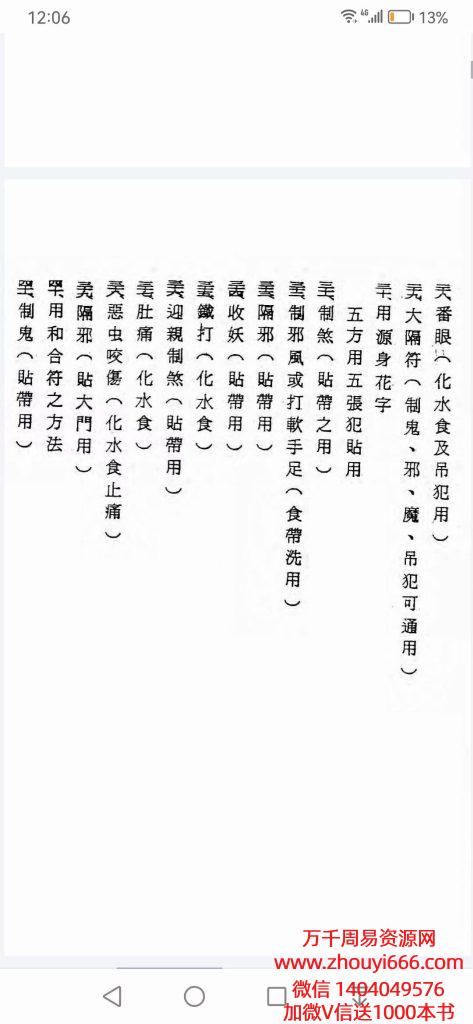 12:06
4G
13%
二八、番眼(化水食及吊犯用)
二九、大隔符(制鬼、邪、魔、吊犯可通用)
三十、用源身花字
五方用五張犯貼用
三一、制煞(貼帶之用)
三二、制邪風或打軟手足(食帶洗用)
三三、隔邪(貼帶用)
三四、收妖(貼帶用)
三五、鐵打(化水食)
三六、迎親制煞(貼帶用)
三七、肚痛(化水食)
三八、惡虫咬傷(化水食止痛)
三九、隔邪(貼大門用)
四十、用和合符之方法
四一、制鬼(貼帶用)
万千周易资源网
www.zhouyi666.com
微信 1404049576
加微V信送1000本书